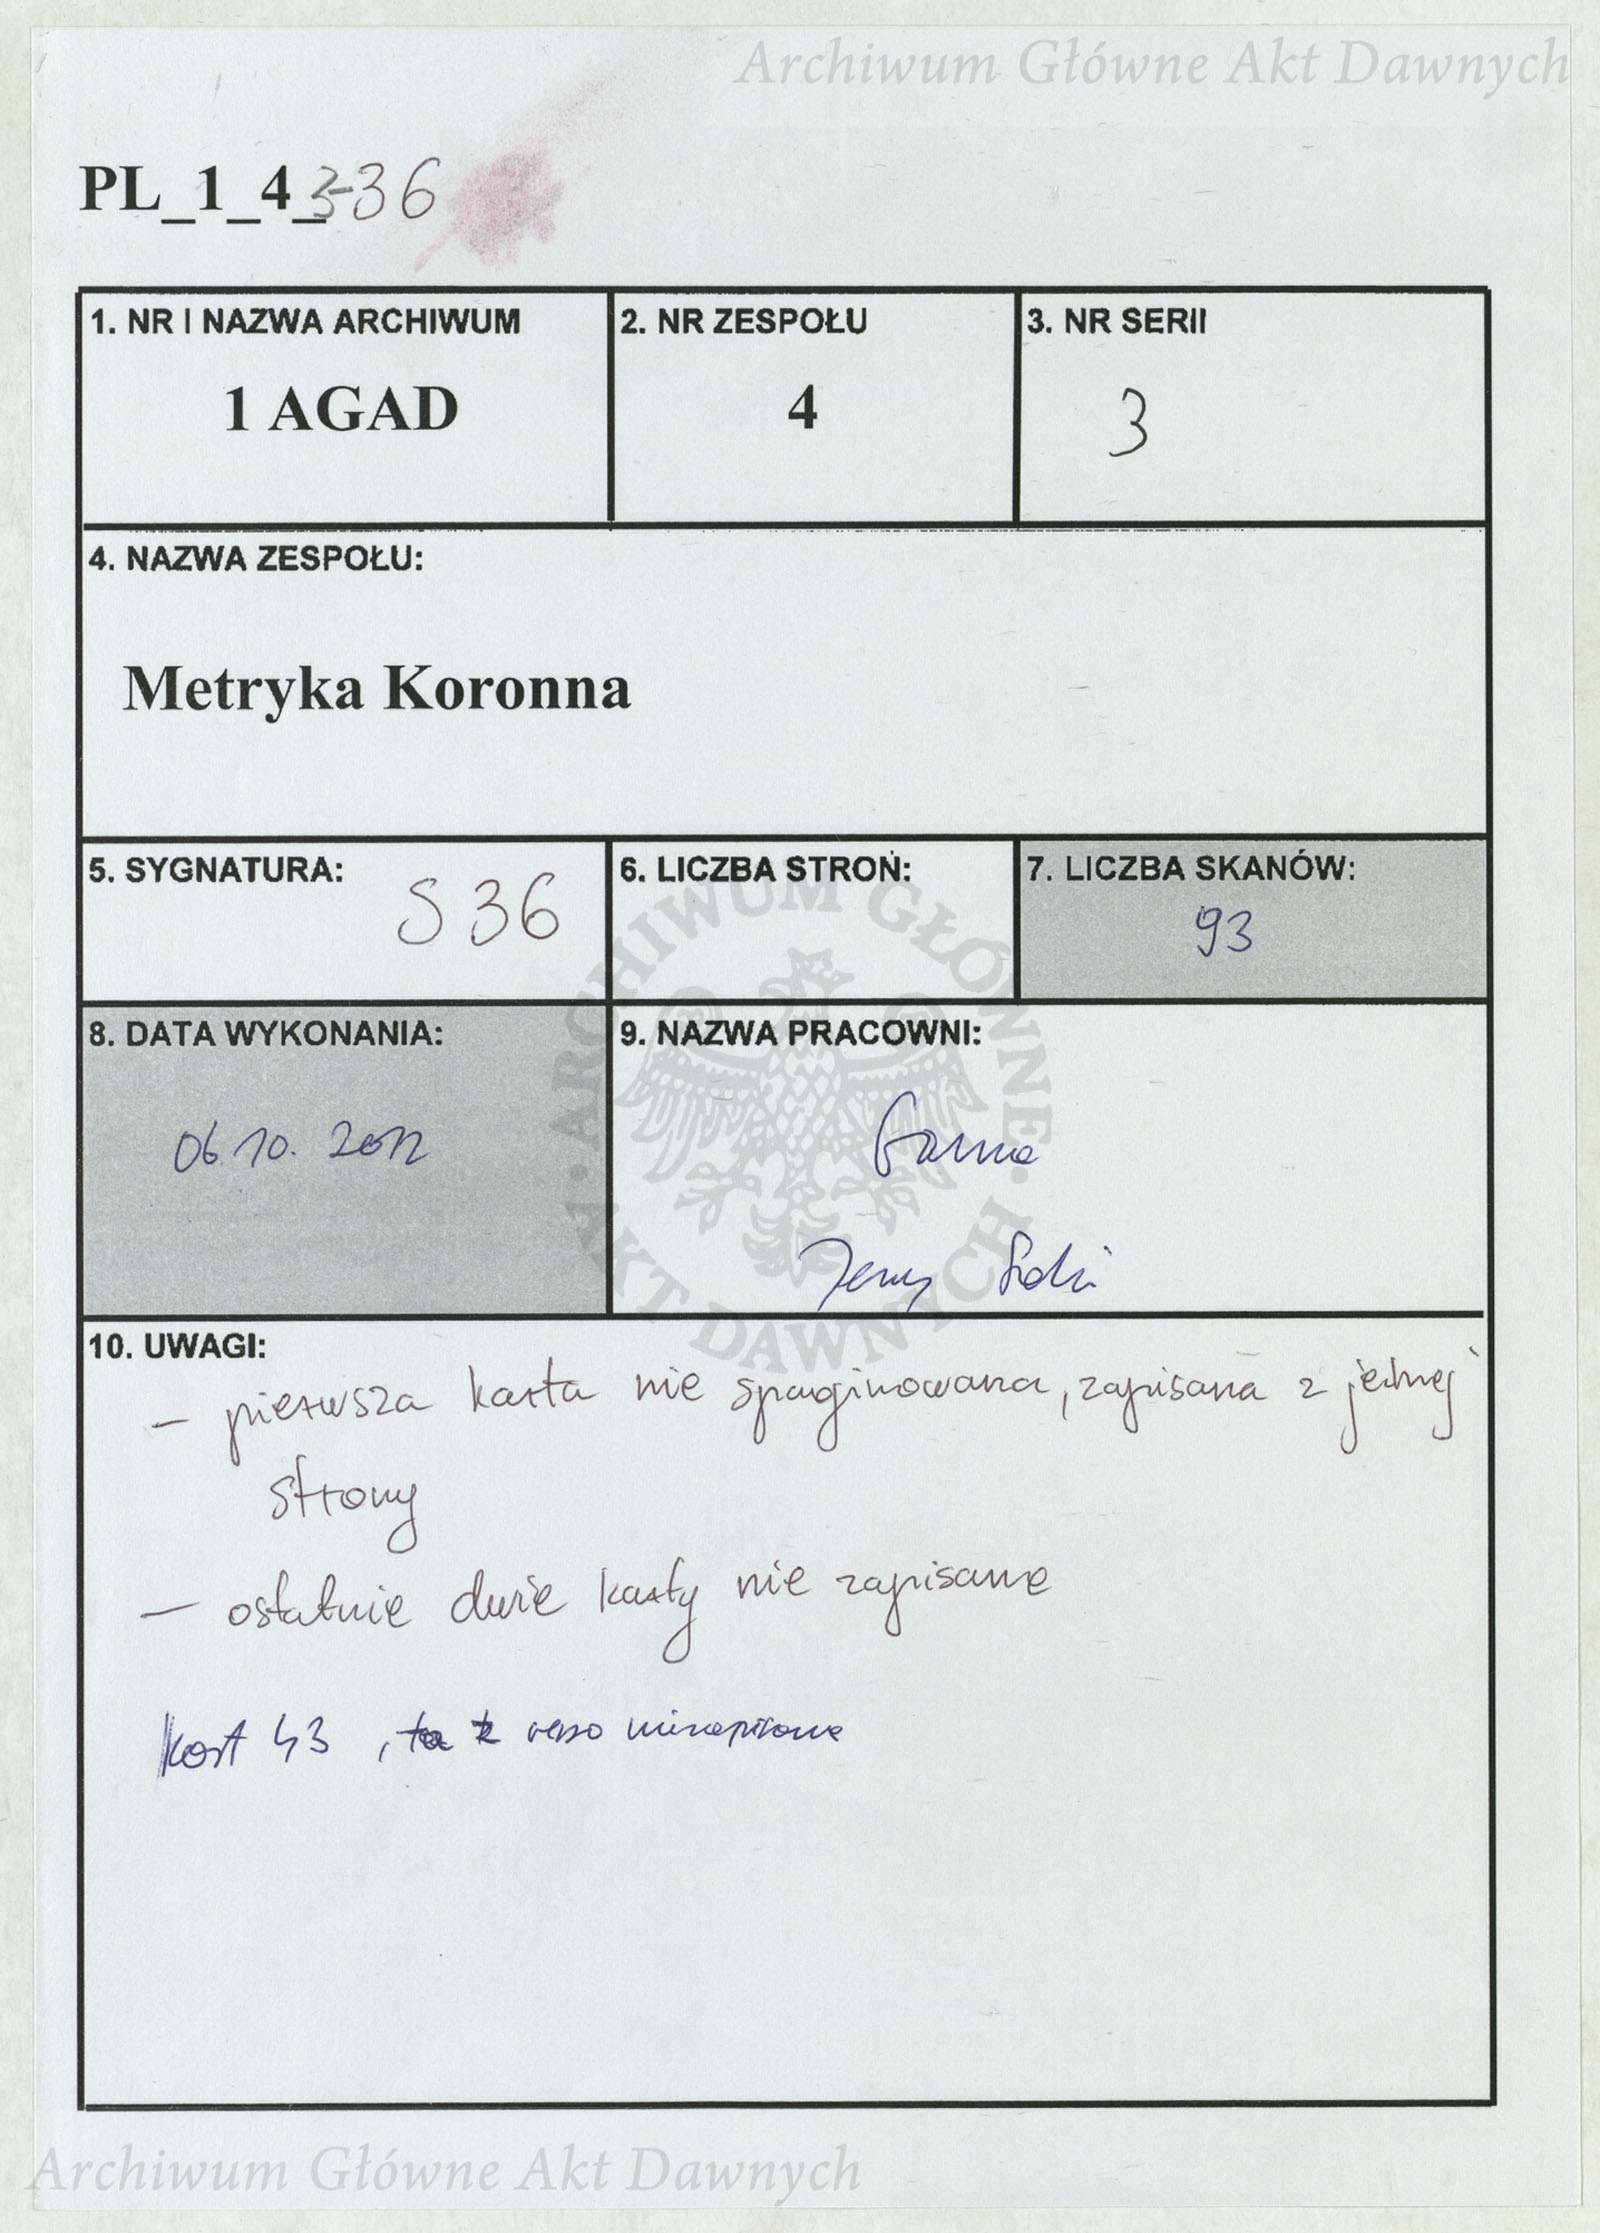 Archiwum Główne Akt Dawnych
PL_1_4_3-36
1. NR I NAZWA ARCHIWUM
1 AGAD
2. NR ZESPOŁU
4
3. NR SERII
3
4. NAZWA ZESPOŁU:
Metryka Koronna
5. SYGNATURA:
S 36
6. LICZBA STRON:
7. LICZBA SKANÓW:
93
8. DATA WYKONANIA:
06 10. 2012
9. NAZWA PRACOWNI:
Jerzy
ARCHIWUM GŁÓWNE · AKT DAWNYCH ·
10. UWAGI:
– pierwsza karta nie spaginowana, zapisana z jednej
strony
– ostatnie dwie karty nie zapisane
kart 43, verso niezapisane
Archiwum Główne Akt Dawnych